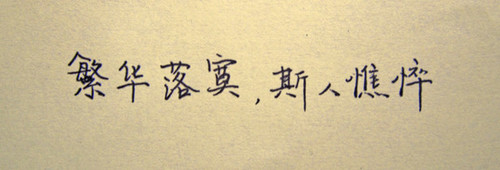 繁华落寞,斯人憔悴